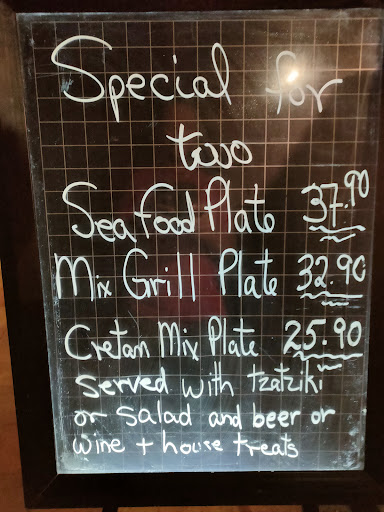 Special for
two
Sea Food Plate 37.90
Mix Grill Plate 32.90
Cretan Mix Plate 25.90
Served with tzatziki
or salad and beer or
wine + house treats